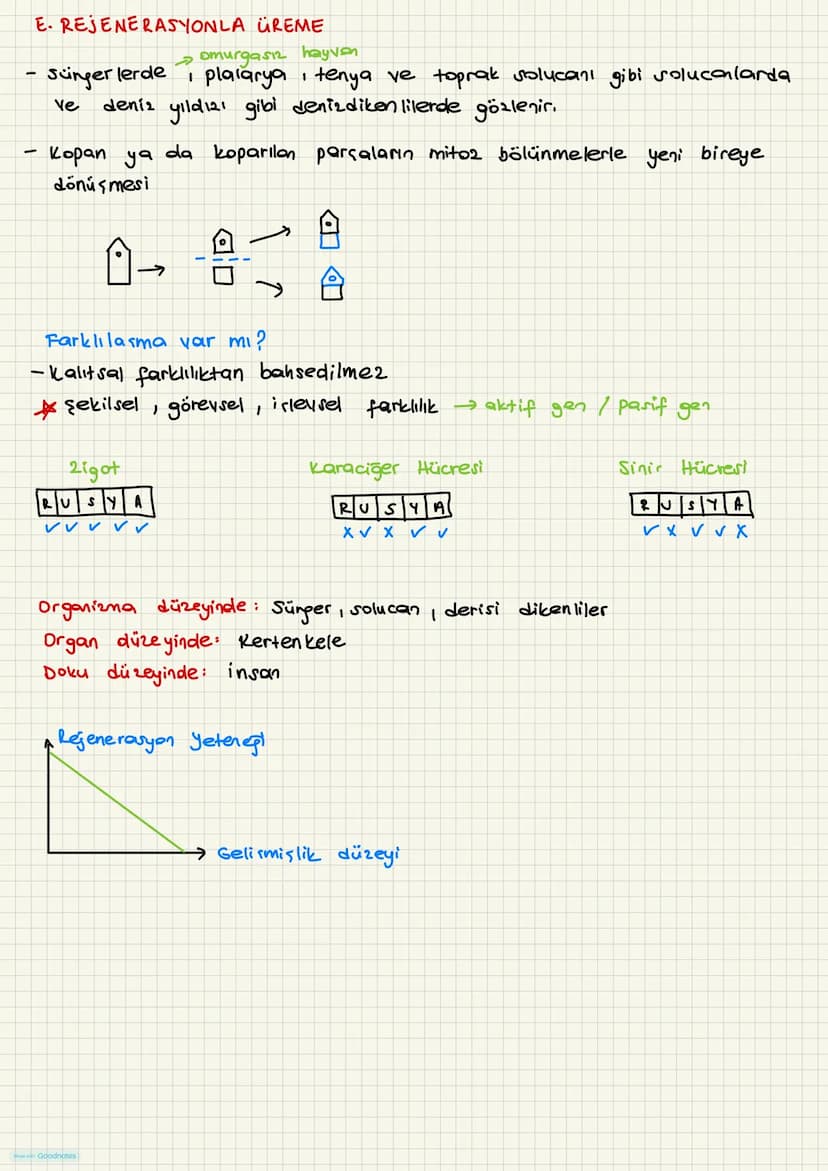 E. REJENERASYONLA ÜREME
→ omurgasız hayvan
- süngerlerde, planarya, tenya ve toprak solucanı gibi solucanlarda
ve deniz yıldızı gibi denizdikenlilerde gözlenir.
- Kopan ya da koparılan parçaların mitoz bölünmelerle yeni bireye
dönüşmesi
Farklılaşma var mı?
- Kalıtsal farklılıktan bahsedilmez
şekilsel, görevsel, işlevsel farklılık → aktif gen / pasif gen
Zigot Karaciğer Hücresi Sinir Hücresi
R U S Y A R U S Y A R U S Y A
✓ ✓ ✓ ✓ ✓ x ✓ x ✓ ✓ ✓ x ✓ ✓ x
Organizma düzeyinde: Sünger, solucan, derisi dikenliler
Organ düzeyinde: Kertenkele
Doku düzeyinde: insan
Rejenerasyon Yeteneği
Gelişmişlik düzeyi
Made with Goodnotes